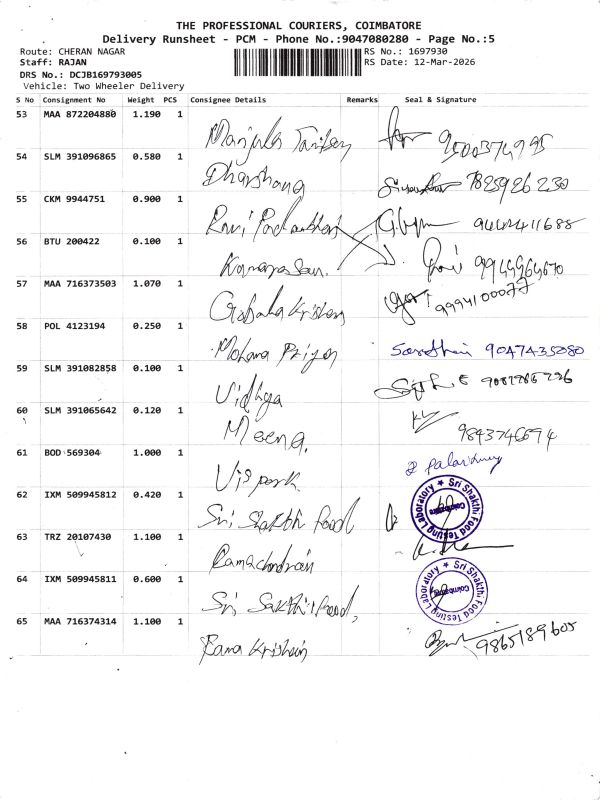 THE PROFESSIONAL COURIERS, COIMBATORE
Delivery Runsheet - PCM - Phone No.:9047080280 - Page No.:5
Route: CHERAN NAGAR RS No.: 1697930
Staff: RAJAN RS Date: 12-Mar-2026
DRS No.: DCJB169793005
Vehicle: Two Wheeler Delivery
S No Consignment No Weight PCS Consignee Details Remarks Seal & Signature
53 MAA 872204880 1.190 1 Manjula
54 SLM 391096865 0.580 1 Dharshana
55 CKM 9944751 0.900 1 Ravi 9442411688
56 BTU 200422 0.100 1
57 MAA 716373503 1.070 1 9994100077
58 POL 4123194 0.250 1 Mohana Priya 9047435080
59 SLM 391082858 0.100 1 Vidhya
60 SLM 391065642 0.120 1 Meena.
61 BOD 569304 1.000 1
62 IXM 509945812 0.420 1 Sri Shakthi Food Sri Shakthi Food Testing Laboratory ★ Coimbatore
63 TRZ 20107430 1.100 1 Ramachandran
64 IXM 509945811 0.600 1 Sri Sakthi Food, Sri Shakthi Food Testing Laboratory ★ Coimbatore
65 MAA 716374314 1.100 1 Rama Krishan 9865189605